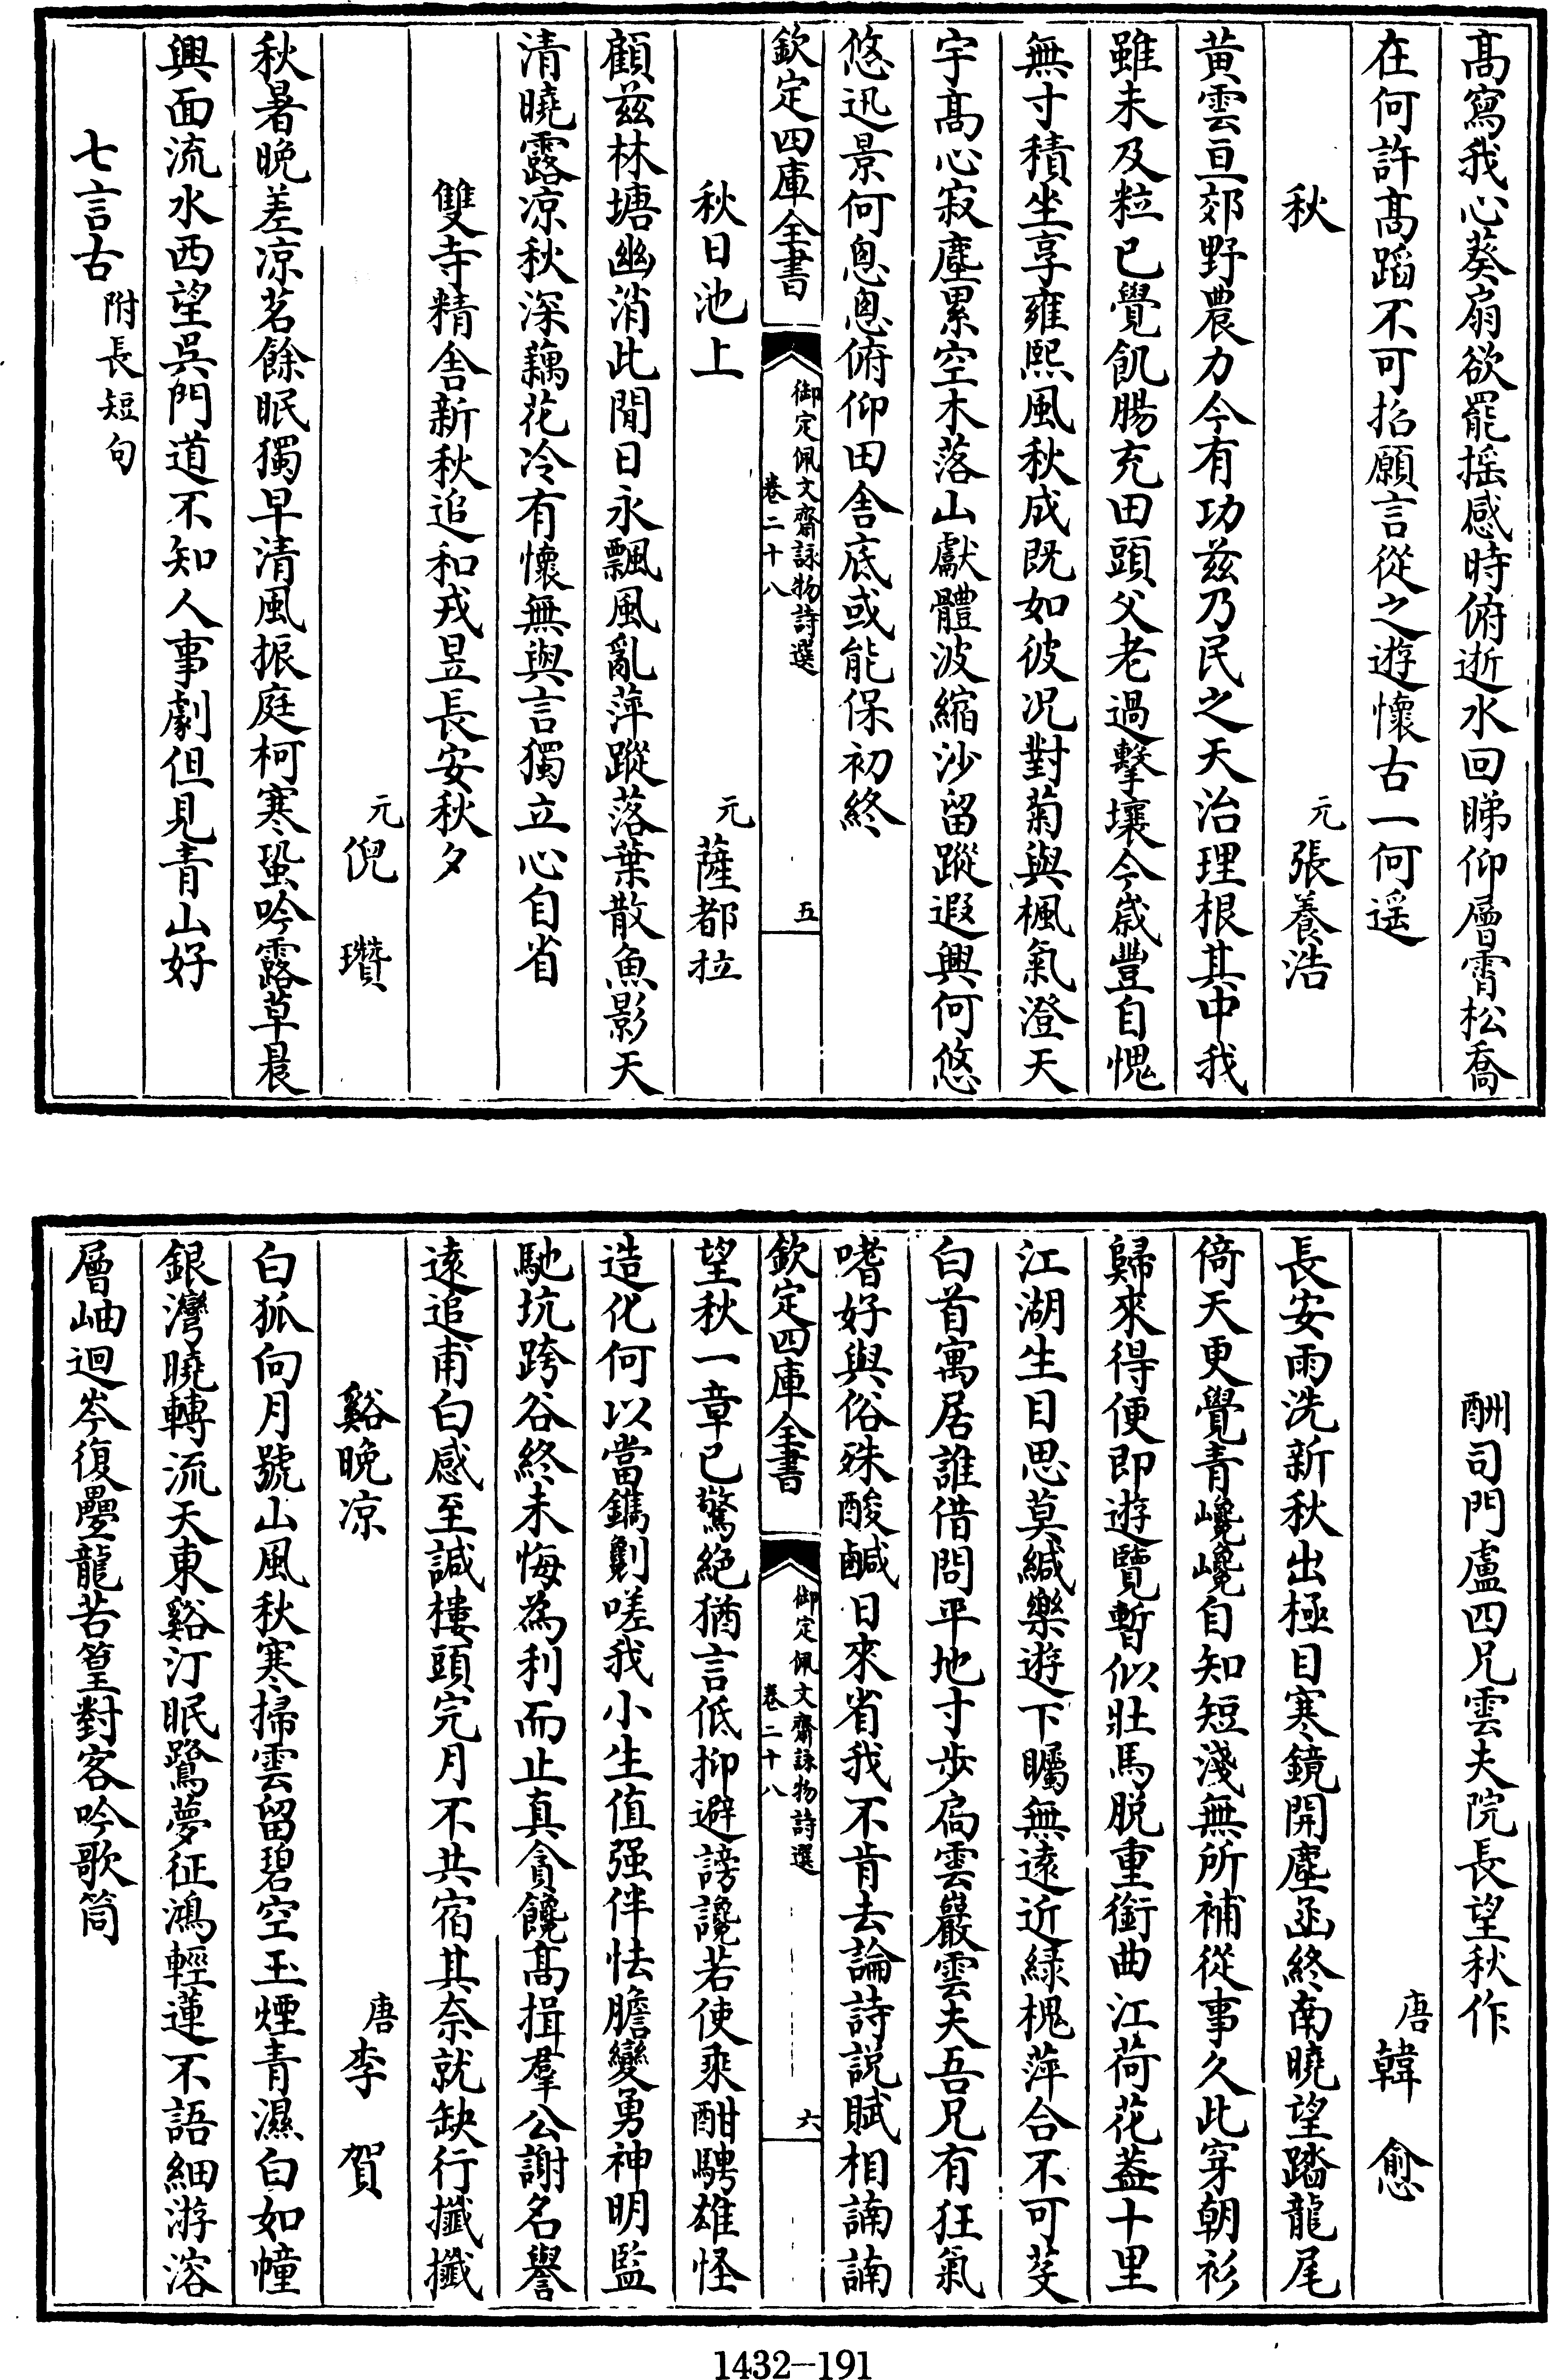 髙寫我心葵扇欲罷揺感時俯逝水回睇仰層霄松喬
在何許髙蹈不可招願言從之遊懷古一何遥
秋
元張養浩
黄雲亘郊野農力今有功兹乃民之天治理根其中我
雖未及粒已覺飢腸充田頭父老過擊壤今歳豐自愧
無寸積坐享雍熙風秋成既如彼况對菊與楓氣澄天
宇髙心寂塵累空木落山獻體波縮沙留蹤遐興何悠
悠迅景何悤悤俯仰田舎底或能保初終
欽定四庫全書
御定佩文齋詠物詩選
卷二十八
五
秋日池上
元薩都拉
顧兹林塘幽消此閒日永飄風亂萍蹤落葉散魚影天
清曉露凉秋深藕花冷有懷無與言獨立心自省
雙寺精舎新秋追和戎昱長安秋夕
元倪瓚
秋暑晩差凉茗餘眠獨早清風振庭柯寒蛩吟露草晨
興面流水西望吳門道不知人事劇但見青山好
七言古附長短句
酬司門盧四兄雲夫院長望秋作
唐韓愈
長安雨洗新秋出極目寒鏡開塵函終南曉望踏龍尾
倚天更覺青巉巉自知短淺無所補從事久此穿朝衫
歸來得便即遊覽暫似壯馬脱重銜曲江荷花葢十里
江湖生目思莫緘樂遊下矚無遠近緑槐萍合不可芟
白首寓居誰借問平地寸步扄雲巖雲夫吾兄有狂氣
嗜好與俗殊酸鹹日來省我不肯去論詩説賦相諵諵
欽定四庫全書
御定佩文齋詠物詩選
卷二十八
六
望秋一章已驚絶猶言低抑避謗讒若使乘酣騁雄怪
造化何以當鐫劖嗟我小生值强伴怯膽變勇神明監
馳坑跨谷終未悔為利而止真貪饞髙揖羣公謝名譽
遠追甫白感至諴樓頭完月不共宿其奈就缺行攕攕
谿晩凉
唐李賀
白狐向月號山風秋寒掃雲留碧空玉煙青濕白如幢
銀灣曉轉流天東谿汀眠鷺夢征鴻輕漣不語細游溶
層岫迴岑復疊龍苦篁對客吟歌筒
1432-191